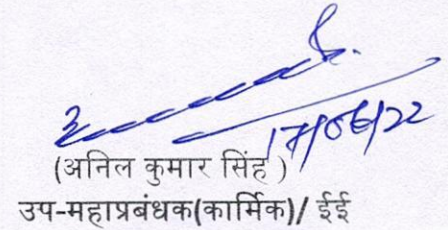 17/06/22
(अनिल कुमार सिंह )
उप-महाप्रबंधक(कार्मिक)/ ईई